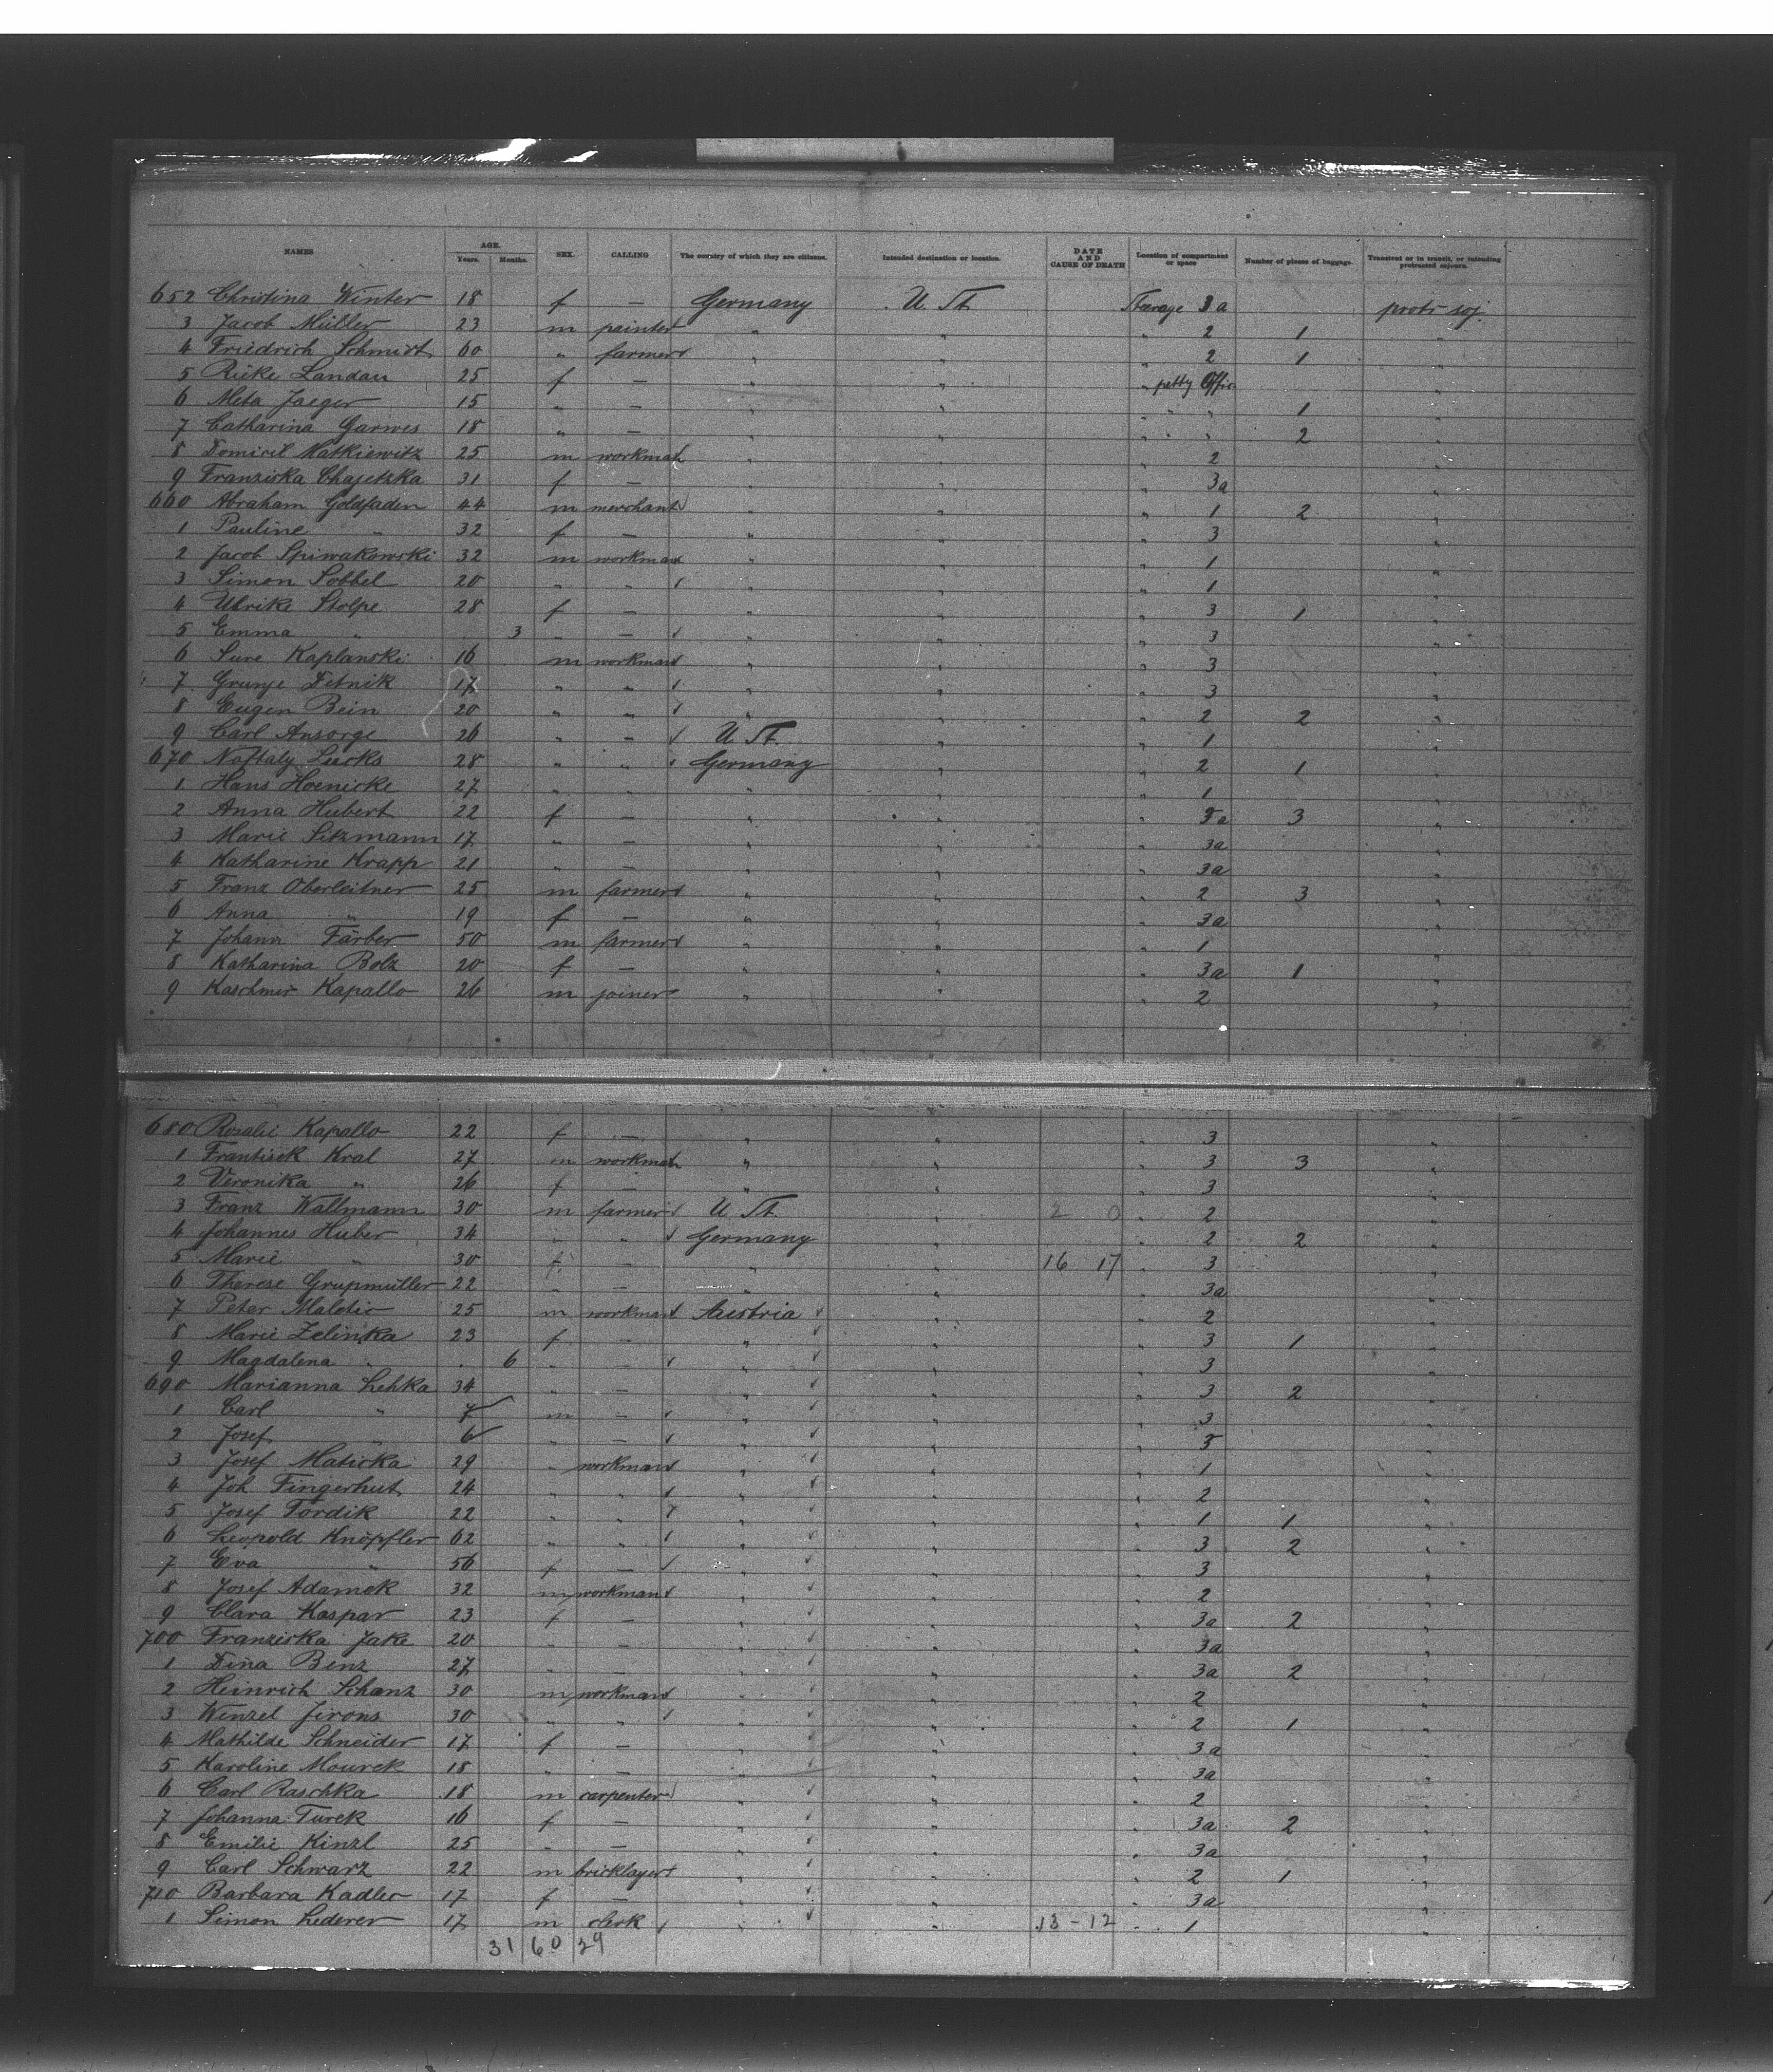 NAMES AGE. Years. Months. SEX. CALLING The country of which they are citizens. Intended destination or location. DATE AND CAUSE OF DEATH Location of compartment or space Number of pieces of baggage. Transient or in transit, or intending protracted sojourn.
652 Christina Winter 18 f — Germany U. St. Steerage 3a protr soj.
3 Jacob Müller 23 m painter " " " 2 1 "
4 Friedrich Schmidt 60 " farmer " " " 2 1 "
5 Rieke Landau 25 f — " " " petty Offic. "
6 Meta Jaeger 15 " — " " " " 1 "
7 Catharina Garwes 18 " — " " " " 2 "
8 Domicil Matkiewitz 25 m workman " " " 2 "
9 Franziska Chajetzka 31 f — " " " 3a "
660 Abraham Goldfaden 44 m merchant " " " 1 2 "
1 Pauline " 32 f — " " " 3 "
2 Jacob Spiwakowski 32 m workman " " " 1 "
3 Simon Sobbel 20 " " " " " 1 "
4 Ulrike Stolpe 28 f — " " " 3 1 "
5 Emma " 3 " — " " " 3 "
6 Sure Kaplanski 16 m workman " " " 3 "
7 Grunje Detnik 17 " " " " " 3 "
8 Eugen Bein 20 " " " " " 2 2 "
9 Carl Ansorge 26 " — U St. " " 1 "
670 Naftaly Liecks 28 " " Germany " " 2 1 "
1 Hans Hoenicke 27 " " " " " 1 "
2 Anna Hubert 22 f — " " " 3a 3 "
3 Marie Sitzmann 17 " — " " " 3a "
4 Katharine Krapp 21 " — " " " 3a "
5 Franz Oberleitner 25 m farmer " " " 2 3 "
6 Anna " 19 f — " " " 3a "
7 Johann Färber 50 m farmer " " " 1 "
8 Katharina Bolz 20 f — " " " 3a 1 "
9 Kaschmir Kapallo 26 m joiner " " " 2 "
680 Rosalie Kapallo 22 f — " " " 3 "
1 Frantisek Kral 27 m workman " " " 3 3 "
2 Veronika " 26 f — " " " 3 "
3 Franz Wallmann 30 m farmer U St. " 2 0 " 2 "
4 Johannes Huber 34 " " Germany " " 2 2 "
5 Marie " 30 f — " " 16 17 " 3 "
6 Therese Grupmüller 22 " — " " " 3a "
7 Peter Maletic 25 m workman Austria " " 2 "
8 Marie Zelinka 23 f — " " " 3 1 "
9 Magdalena " 6 " — " " " 3 "
690 Marianna Lehka 34 " — " " " 3 2 "
1 Carl " 7 m — " " " 3 "
2 Josef " 6 " — " " " 3 "
3 Josef Maticka 29 " workman " " " 1 "
4 Joh Fingerhut 24 " " " " " 2 "
5 Josef Tordik 22 " " " " " 1 1 "
6 Leopold Knöpfler 62 " " " " " 3 2 "
7 Eva " 56 f — " " " 3 "
8 Josef Adamek 32 m workman " " " 2 "
9 Clara Kaspar 23 f — " " " 3a 2 "
700 Franziska Jake 20 " — " " " 3a "
1 Dina Benz 27 " — " " " 3a 2 "
2 Heinrich Schanz 30 m workman " " " 2 "
3 Wenzel Jirons 30 " " " " " 2 1 "
4 Mathilde Schneider 17 f — " " " 3a "
5 Karoline Mourek 18 " — " " " 3a "
6 Carl Raschka 18 m carpenter " " " 2 "
7 Johanna Turek 16 f — " " " 3a 2 "
8 Emilie Kinzl 25 " — " " " 3a "
9 Carl Schwarz 22 m bricklayer " " " 2 1 "
710 Barbara Kadler 17 f — " " " 3a "
1 Simon Lederer 17 m clerk " " 13-12 " 1 "
31 60 29